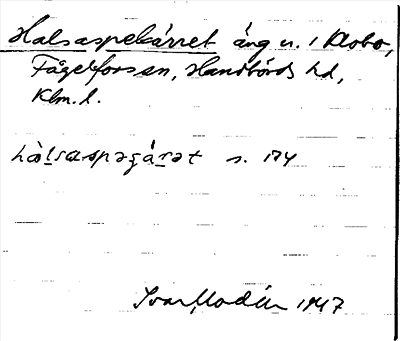 Halsaspekärret äng n. i Klobo,
Fågelforsen, Handbörds hd,
Klm. l.
hàlsaspəçä́rət s. 174
Ivar Modéer 1947